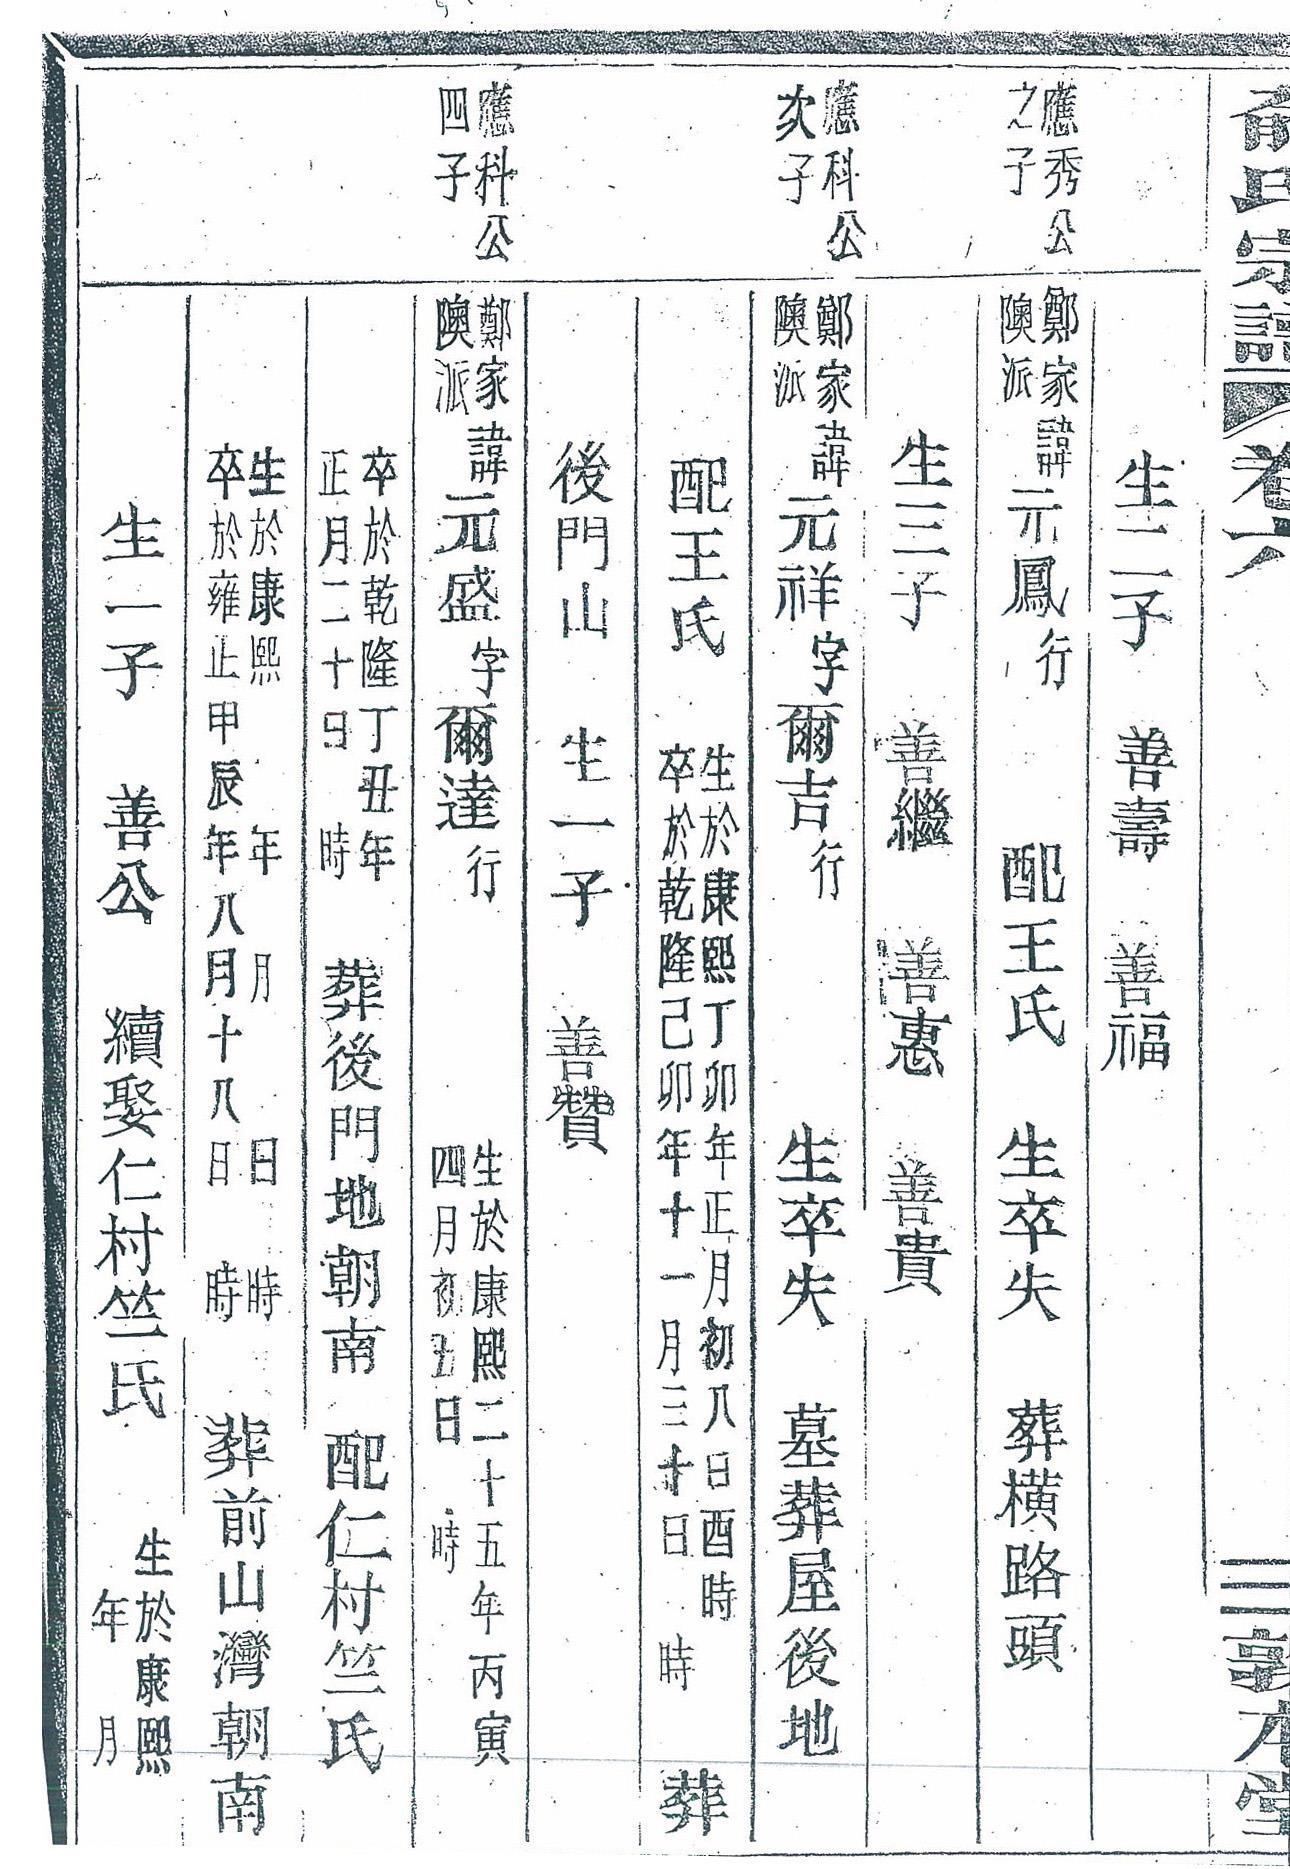 俞氏宗譜
卷六
三 敦本堂
生二子 善壽 善福
應秀公
之子
鄭家
隩派
諱元鳳行 配王氏 生卒失 葬橫路頭
生三子 善繼 善惠 善貴
應科公
次子
鄭家
隩派
諱元祥字爾吉行 生卒失 墓葬屋後地
配王氏
生於康熙丁卯年正月初八日酉時
卒於乾隆己卯年十一月三十日 時
葬
後門山 生一子 善贊
應科公
四子
鄭家
隩派
諱元盛字爾達行
生於康熙二十五年丙寅
四月初五日 時
卒於乾隆丁丑年
正月二十日 時
葬後門地朝南 配仁村竺氏
生於康熙 年 月 日 時
卒於雍正甲辰年八月十八日 時
葬前山灣朝南
生一子 善公 續娶仁村竺氏
生於康熙
年 月